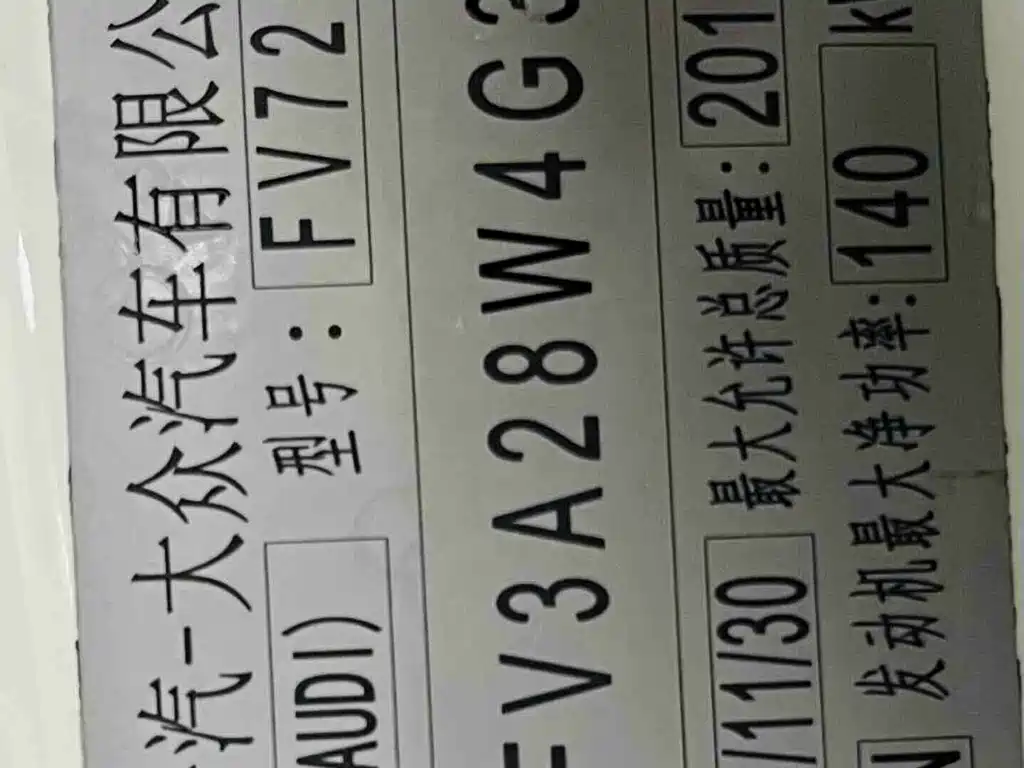 汽-大众汽车有限公
AUDI) 型号: FV72
FV3A28W4G3
/11/30 最大允许总质量: 201
N 发动机最大净功率: 140 k